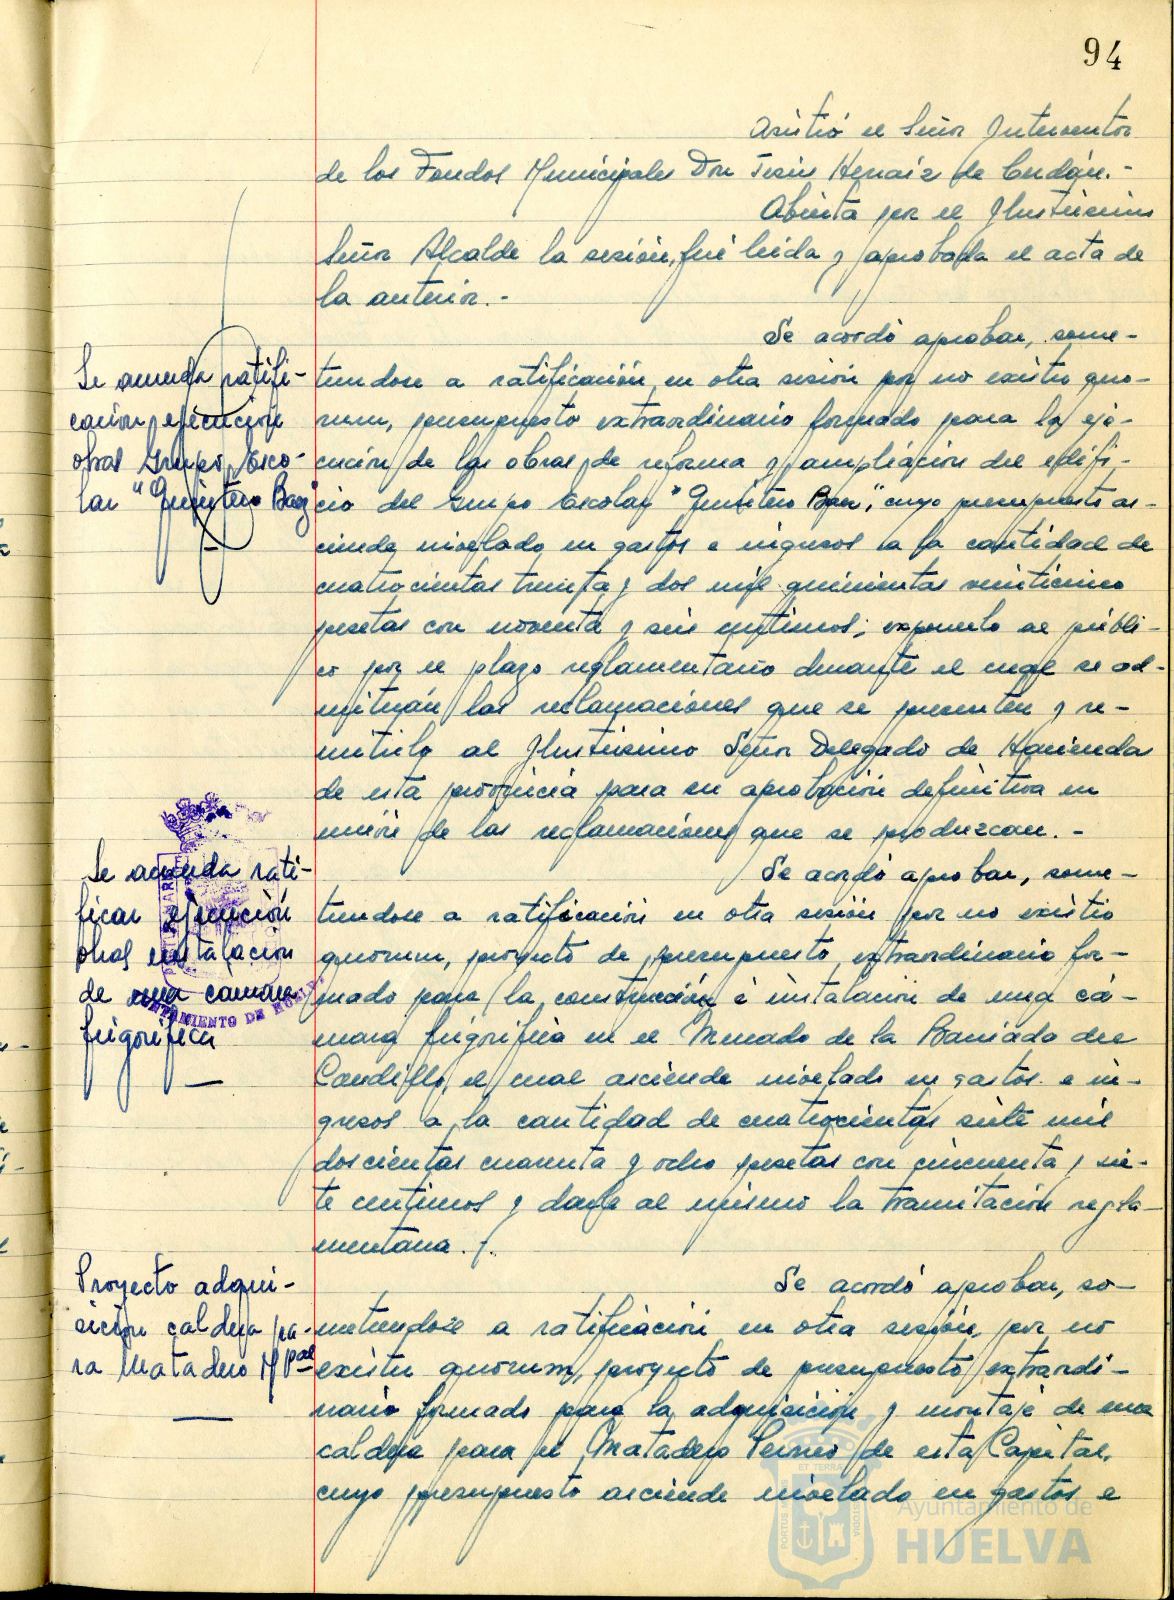 94
Asistió el Señor Interventor
de los Fondos Municipales Don Jesús Hernáiz de
Abierta por el Ilustrísimo
Señor Alcalde la sesión, fué leida y aprobada el acta de
la anterior.-
Se acordó aprobar, some-
tiendose a ratificación en otra sesión por no existir quo-
rum, presupuesto extraordinario formado para la eje-
cución de las obras de reforma y ampliación del edifi-
cio del Grupo Escolar "Quintero Baez", cuyo presupuesto as-
ciende nivelado en gastos e ingresos a la cantidad de
cuatrocientas treinta y dos mil quinientas veinticinco
pesetas con noventa y seis centimos; exponerlo al públi-
co por el plazo reglamentario durante el cual se ad-
mitirán las reclamaciones que se presenten y re-
mitirlo al Ilustrisimo Señor Delegado de Hacienda
de esta provincia para su aprobación definitiva en
unión de las reclamaciones que se produzcan.-
Se acordó aprobar, some-
tiendose a ratificación en otra sesión por no existir
quorum, proyecto de presupuesto extraordinario for-
mado para la construcción é instalación de una cá-
mara frigorífica en el Mercado de la Barriada del
Caudillo, el cual asciende nivelado en gastos e in-
gresos a la cantidad de cuatrocientas siete mil
doscientas cuarenta y ocho pesetas con cincuenta y sie-
te centimos y darle al mismo la tramitación regla-
mentaria.-
Se acordó aprobar, so-
metiendose a ratificación en otra sesión por no
existir quorum, proyecto de presupuesto extraordi-
nario formado para la adquisición y montaje de una
caldera para el Matadero de esta Capital,
cuyo presupuesto asciende nivelado en gastos e
Se acuerda ratifi-
cación ejecución
obras Grupo Esco-
lar "Quintero Baez"
Se acuerda rati-
ficar ejecución
obras instalación
de una camara
frigorífica
Proyecto adqui-
sición caldera pa-
ra Matadero Mpal
AYUNTAMIENTO DE HUELVA
Ayuntamiento de
HUELVA